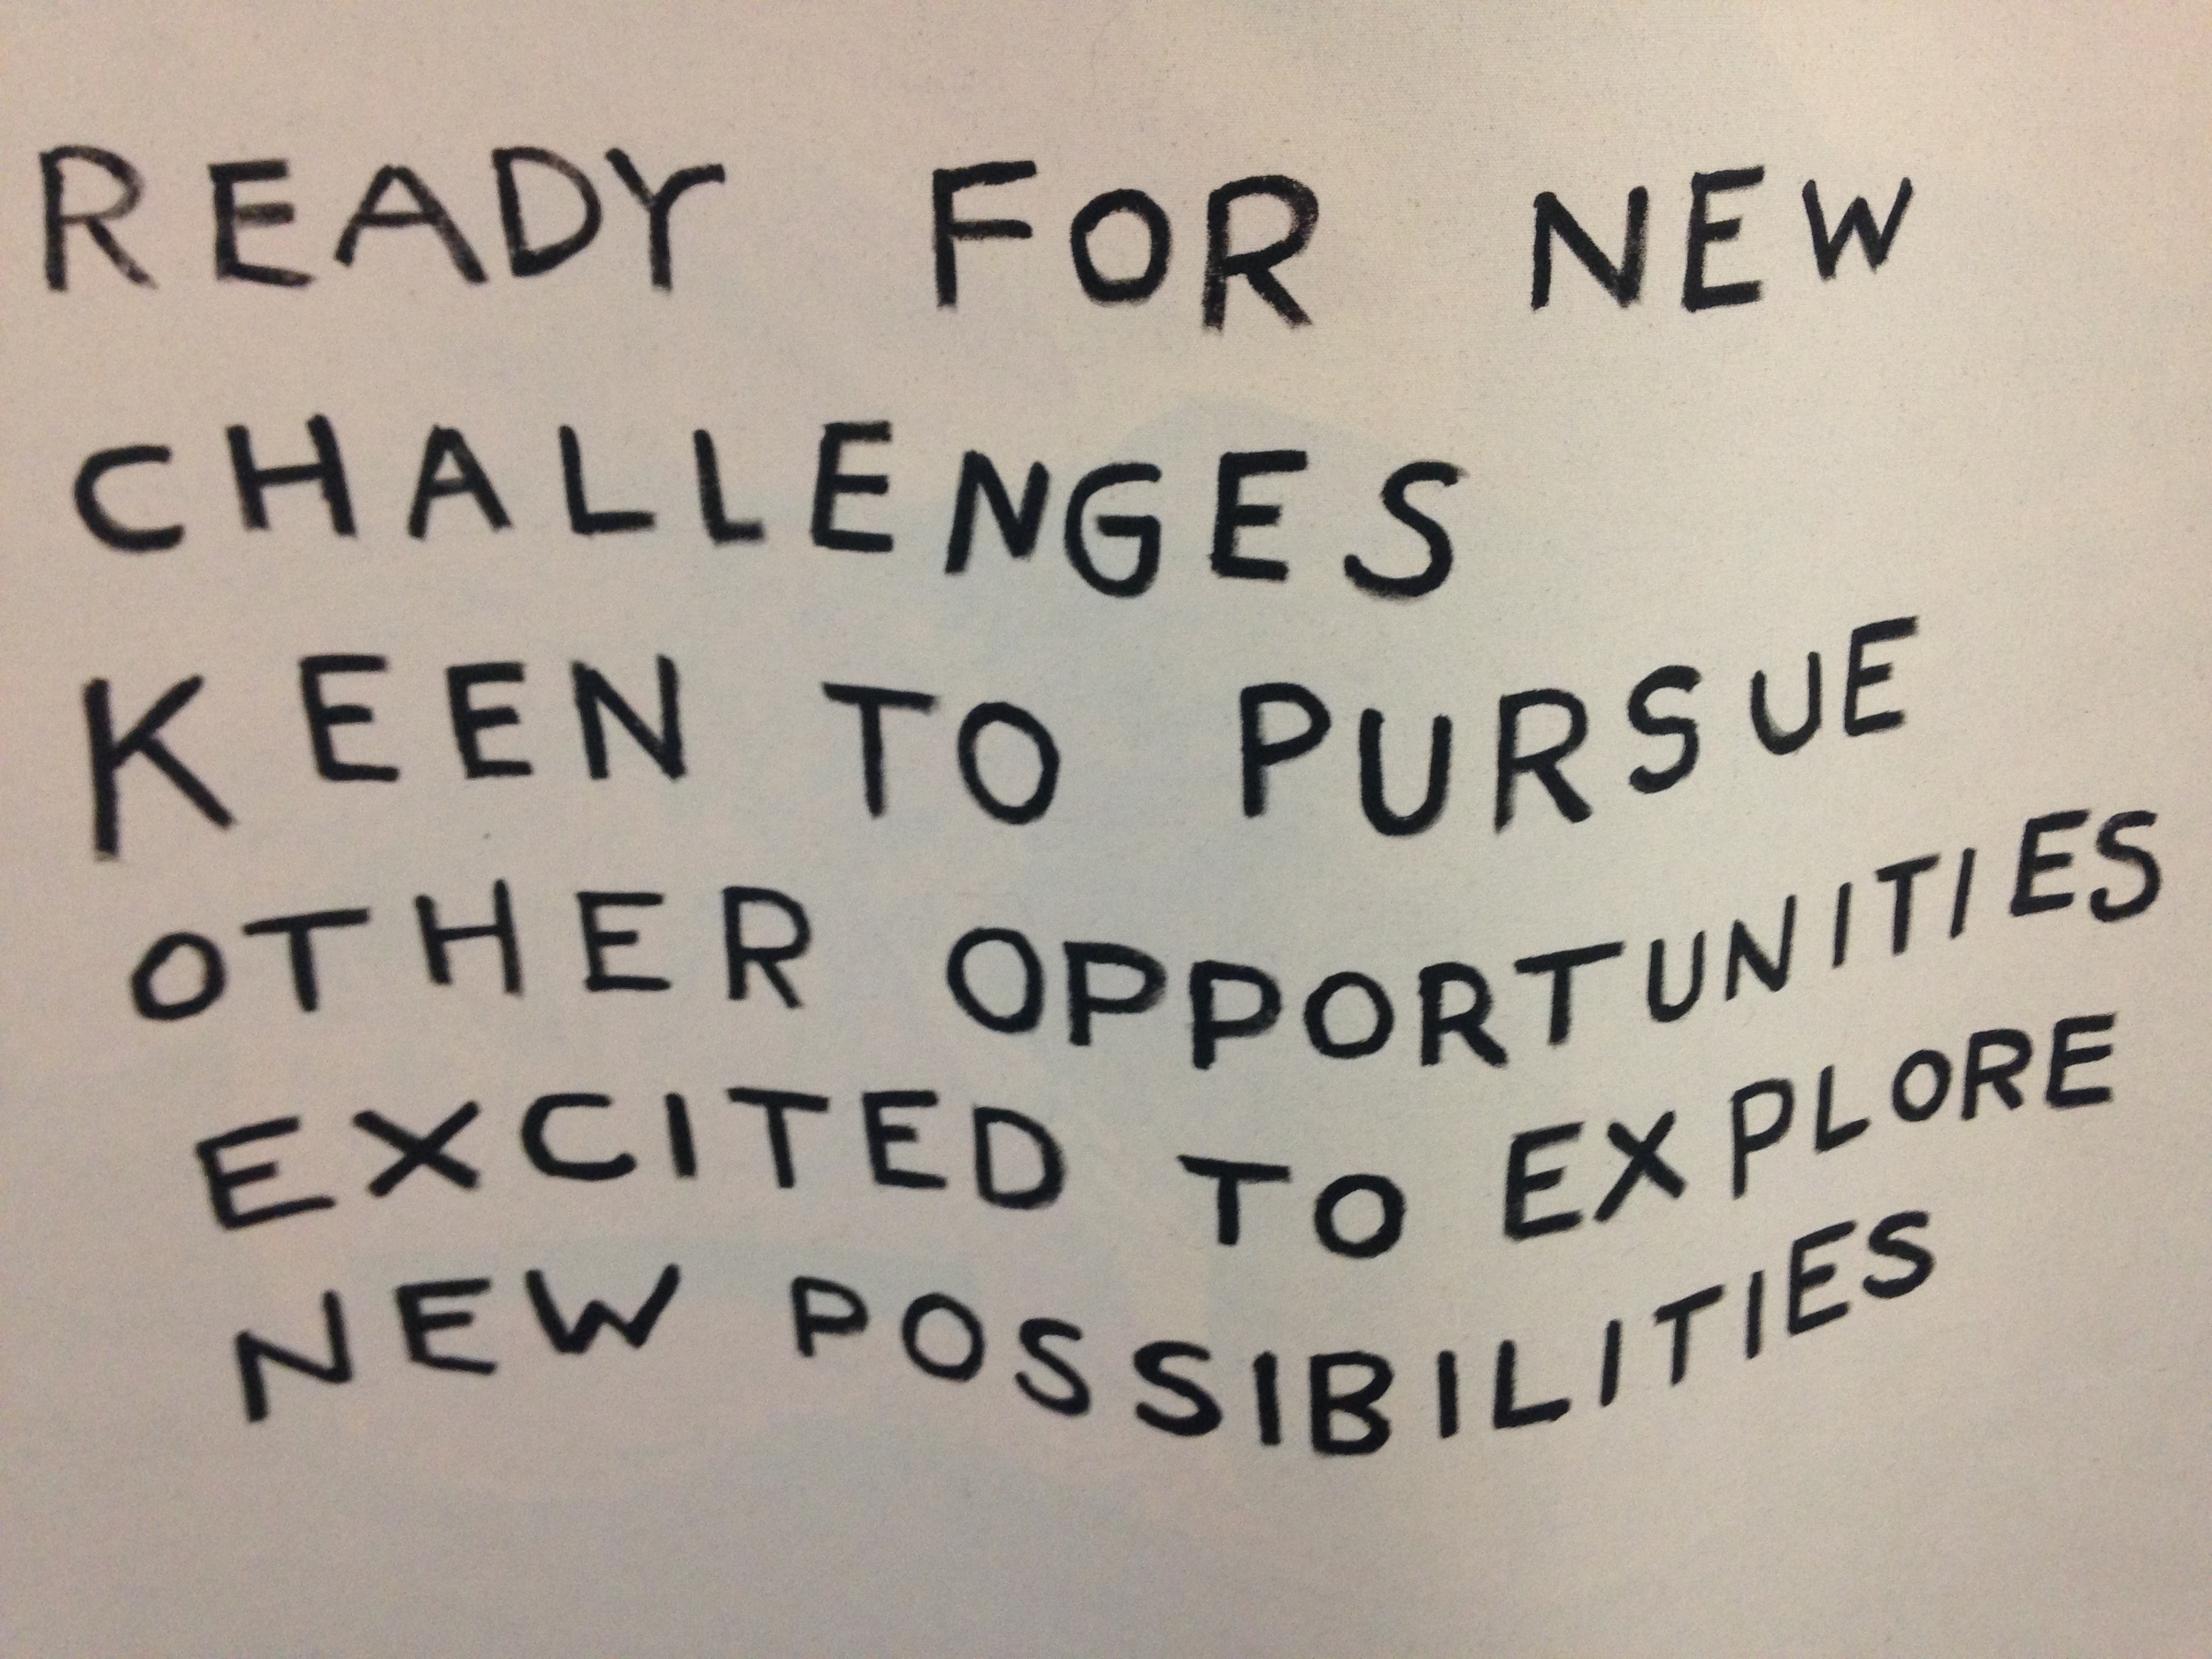 READY FOR NEW
CHALLENGES
KEEN TO PURSUE
OTHER OPPORTUNITIES
EXCITED TO EXPLORE
NEW POSSIBILITIES